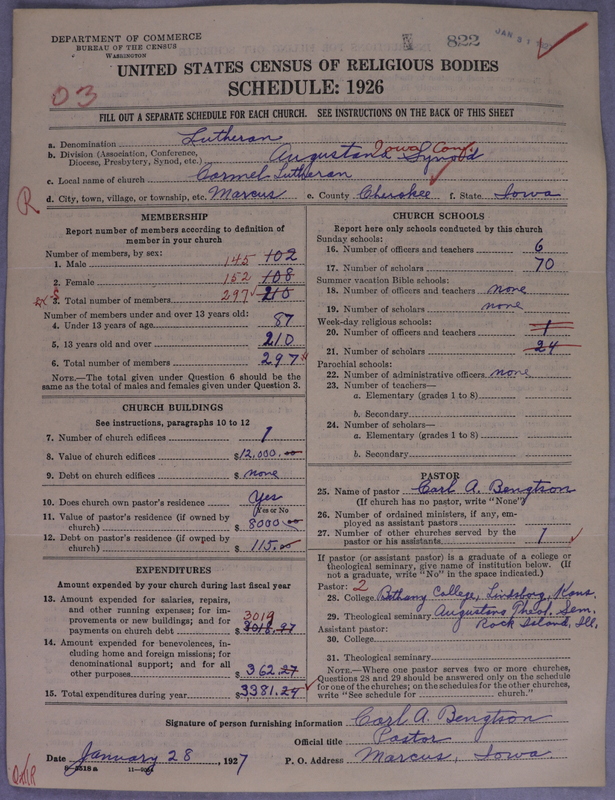 DEPARTMENT OF COMMERCE
BUREAU OF THE CENSUS
WASHINGTON
822
JAN 31
UNITED STATES CENSUS OF RELIGIOUS BODIES
SCHEDULE: 1926
03
FILL OUT A SEPARATE SCHEDULE FOR EACH CHURCH. SEE INSTRUCTIONS ON THE BACK OF THIS SHEET
a. Denomination Lutheran
b. Division (Association, Conference, Diocese, Presbytery, Synod, etc.) Augustana Synod Iowa Conf.
c. Local name of church Carmel Lutheran
R
d. City, town, village, or township, etc. Marcus e. County Cherokee f. State Iowa
MEMBERSHIP
Report number of members according to definition of member in your church
Number of members, by sex:
1. Male 145 102
2. Female 152 108
3. Total number of members 297 210
Number of members under and over 13 years old:
4. Under 13 years of age 87
5. 13 years old and over 210
6. Total number of members 297
NOTE.—The total given under Question 6 should be the same as the total of males and females given under Question 3.
CHURCH BUILDINGS
See instructions, paragraphs 10 to 12
7. Number of church edifices 1
8. Value of church edifices $12,000.00
9. Debt on church edifices $ none
10. Does church own pastor's residence Yes
Yes or No
11. Value of pastor's residence (if owned by church) $ 8000.00
12. Debt on pastor's residence (if owned by church) $ 115.00
EXPENDITURES
Amount expended by your church during last fiscal year
13. Amount expended for salaries, repairs, and other running expenses; for improvements or new buildings; and for payments on church debt $ 3018.97 3019
14. Amount expended for benevolences, including home and foreign missions; for denominational support; and for all other purposes $ 362.27
15. Total expenditures during year $3381.24
CHURCH SCHOOLS
Report here only schools conducted by this church
Sunday schools:
16. Number of officers and teachers 6
17. Number of scholars 70
Summer vacation Bible schools:
18. Number of officers and teachers none
19. Number of scholars none
Week-day religious schools:
20. Number of officers and teachers 1
21. Number of scholars 24
Parochial schools:
22. Number of administrative officers none
23. Number of teachers—
a. Elementary (grades 1 to 8)
b. Secondary
24. Number of scholars—
a. Elementary (grades 1 to 8)
b. Secondary
PASTOR
25. Name of pastor Carl A. Bengtson
(If church has no pastor, write "None")
26. Number of ordained ministers, if any, employed as assistant pastors
27. Number of other churches served by the pastor or his assistants 1
If pastor (or assistant pastor) is a graduate of a college or theological seminary, give name of institution below. (If not a graduate, write "No" in the space indicated.)
Pastor: 2
28. College Bethany College, Lindsborg, Kans.
29. Theological seminary Augustana Theol. Sem. Rock Island, Ill.
Assistant pastor:
30. College
31. Theological seminary
NOTE.—Where one pastor serves two or more churches, Questions 28 and 29 should be answered only on the schedule for one of the churches; on the schedules for the other churches, write "See schedule for church."
Signature of person furnishing information Carl A. Bengtson
Official title Pastor
Date January 28, 1927 P. O. Address Marcus, Iowa.
8-5318 a